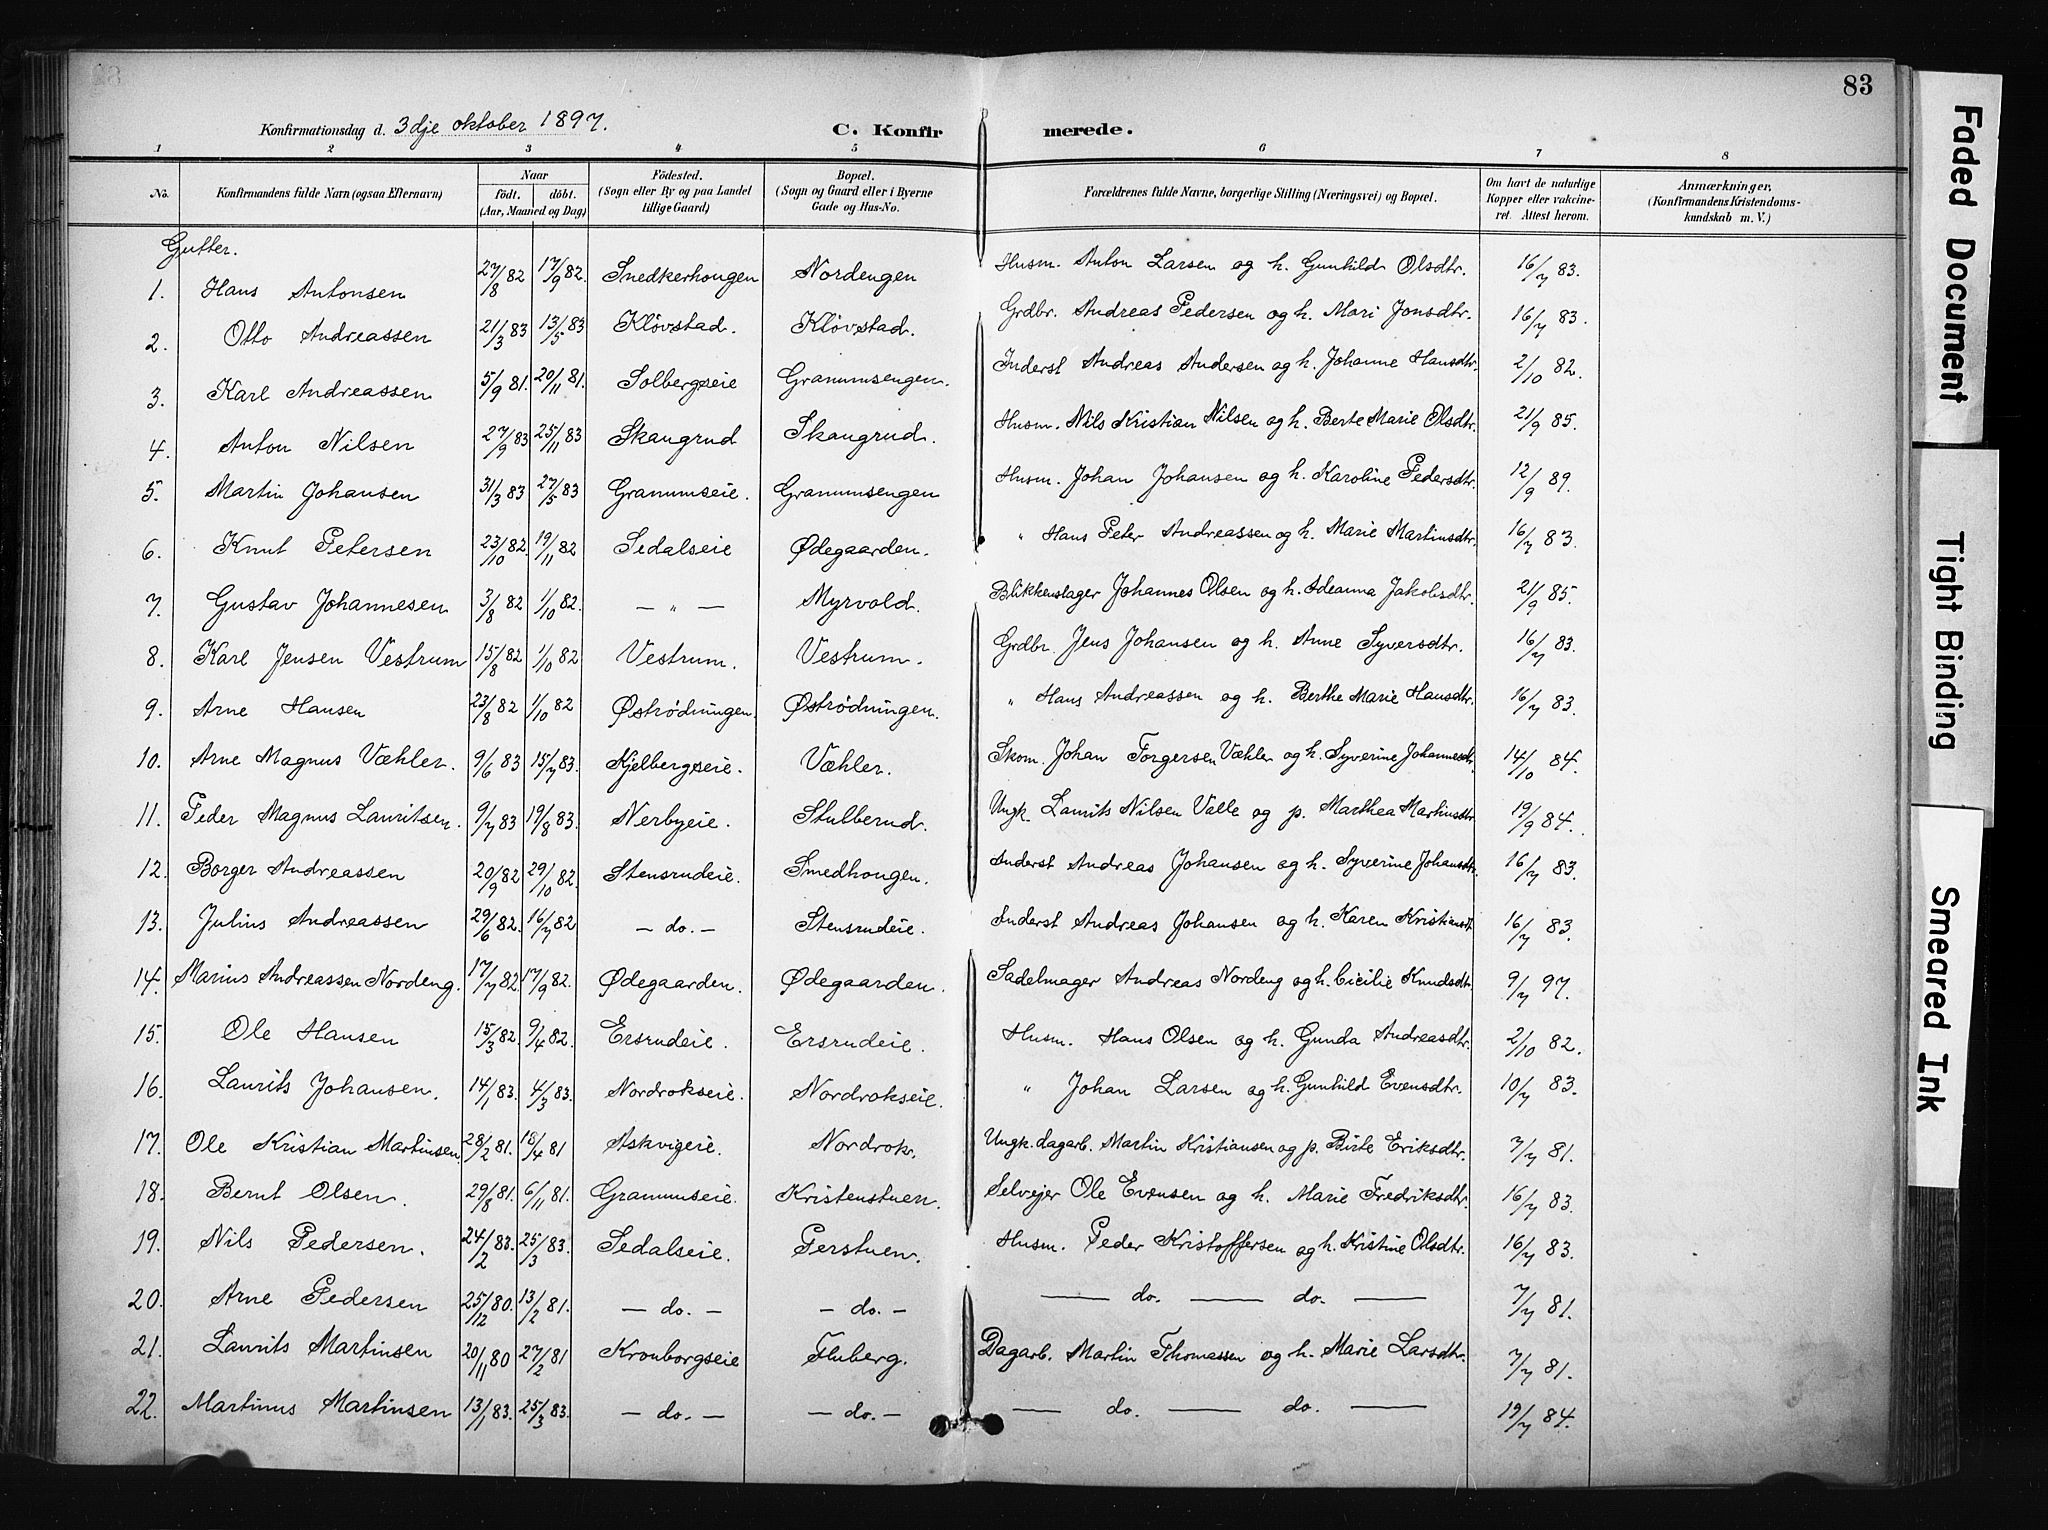 83
Konfirmationsdag d. 3dje oktober 1897. C. Konfirmerede.
1 2 3 4 5 6 7 8
No. Konfirmandens fulde Navn (ogsaa Efternavn) Naar født. døbt. (Aar, Maaned og Dag) Födested. (Sogn eller By og paa Landet tillige Gaard) Bopæl. (Sogn og Gaard eller i Byerne Gade og Hus-No. Forældrenes fulde Navne, borgerlige Stilling (Næringsvei) og Bopæl. Om havt de naturlige Kopper eller vakcineret. Attest herom. Anmærkninger. (Konfirmandens Kristendomskundskab m. V.)
Gutter.
1. Hans Antonsen 27/8 82 17/9 82. Snedkerhougen Nordengen Husm. Anton Larsen og h. Gunhild Olsdtr. 16/7 83.
2. Otto Andreassen 21/3 83 13/5 83 Kløvstad. Kløvstad. Grdbr. Andreas Pedersen og h. Mari Jonsdtr. 16/7 83.
3. Karl Andreassen 5/9 81. 20/11 81. Solbergseie Granumsengen. Inderst Andreas Andersen og h. Johanne Hansdtr. 2/10 82.
4. Anton Nilsen 27/9 83 25/11 83 Skaugrud Skaugrud. Husm. Nils Kristian Nilsen og h. Berte Marie Olsdtr. 21/9 85.
5. Martin Johansen 31/3 83 27/5 83 Granumseie. Granumsengen Husm. Johan Johansen og h. Karoline Pedersdtr. 12/9 89.
6. Knut Petersen 23/10 82. 19/11 82 Sedalseie Ødegaarden. " Hans Peter Andreassen og h. Marie Martinsdtr. 16/7 83.
7. Gustav Johannesen 3/8 82 1/10 82. — " — Myrvold. Blikkenslager Johannes Olsen og h. Ideanna Jakobsdtr. 21/9 85.
8. Karl Jensen Vestrum 15/8 82 1/10 82 Vestrum. Vestrum. Grdbr. Jens Johansen og h. Anne Syversdtr. 16/7 83.
9. Arne Hansen 23/8 82 1/10 82 Østrødningen. Østrødningen. " Hans Andreassen og h. Berthe Marie Hansdtr. 16/7 83.
10. Arne Magnus Væhler. 9/6 83 15/7 83. Kjelbergseie. Væhler. Skom. Johan Torgersen Væhler og h. Syverine Johannesdtr. 14/10 84.
11. Peder Magnus Lauritsen. 9/7 83 19/8 83. Nerbyeie. Stulberud. Ungk. Laurits Nilsen Valle og p. Marthea Martinsdtr. 19/9 84.
12. Borger Andreassen 20/9 82 29/10 82. Stensrudeie. Smedhougen. Inderst Andreas Johansen og h. Syverine Johansdtr. 16/7 83.
13. Julius Andreassen 29/6 82. 16/7 82 — do. — Stensrudeie. Inderst Andreas Johansen og h. Karen Kristiansdt. 16/7 83.
14. Marius Andreassen Nordeng. 17/7 82 17/9 82. Ødegaarden. Ødegaarden. Sadelmager Andreas Nordeng og h. Cicilie Knudsdtr. 9/7 97.
15. Ole Hansen 15/3 82. 9/4 82. Ersrudeie. Ersrudeie. Husm. Hans Olsen og h. Gunda Andreasdtr. 2/10 82.
16. Laurits Johansen. 14/1 83. 4/3 83. Nordrokseie. Nordrokseie. " Johan Larsen og h. Gunhild Evensdtr. 10/7 83.
17. Ole Kristian Martinsen. 28/2 81. 18/4 81 Askvigeie. Nordrok. Ungk. dagarb. Martin Kristiansen og p. Birte Eriksdtr. 7/7 81.
18. Bernt Olsen. 29/8 81. 6/11 81. Granumseie. Kristenstuen. Selvejer Ole Evensen og h. Marie Fredriksdtr. 16/7 83.
19. Nils Pedersen. 24/2 83. 25/3 83. Sedalseie. Perstuen. Husm. Peder Kristoffersen og h. Kristine Olsdtr. 16/7 83.
20. Arne Pedersen 25/12 80. 13/2 81. — do. — — do. — — do. — do. — 7/7 81.
21. Laurits Martinsen 20/11 80 27/2 81 Kronborgseie Fluberg. Dagarb. Martin Thomassen og h. Marie Larsdtr. 7/7 81.
22. Martinus Martinsen 13/1 83. 25/3 83. — do. — — do. — — do. — do. — 19/7 84.
Faded Document
Tight Binding
Smeared Ink